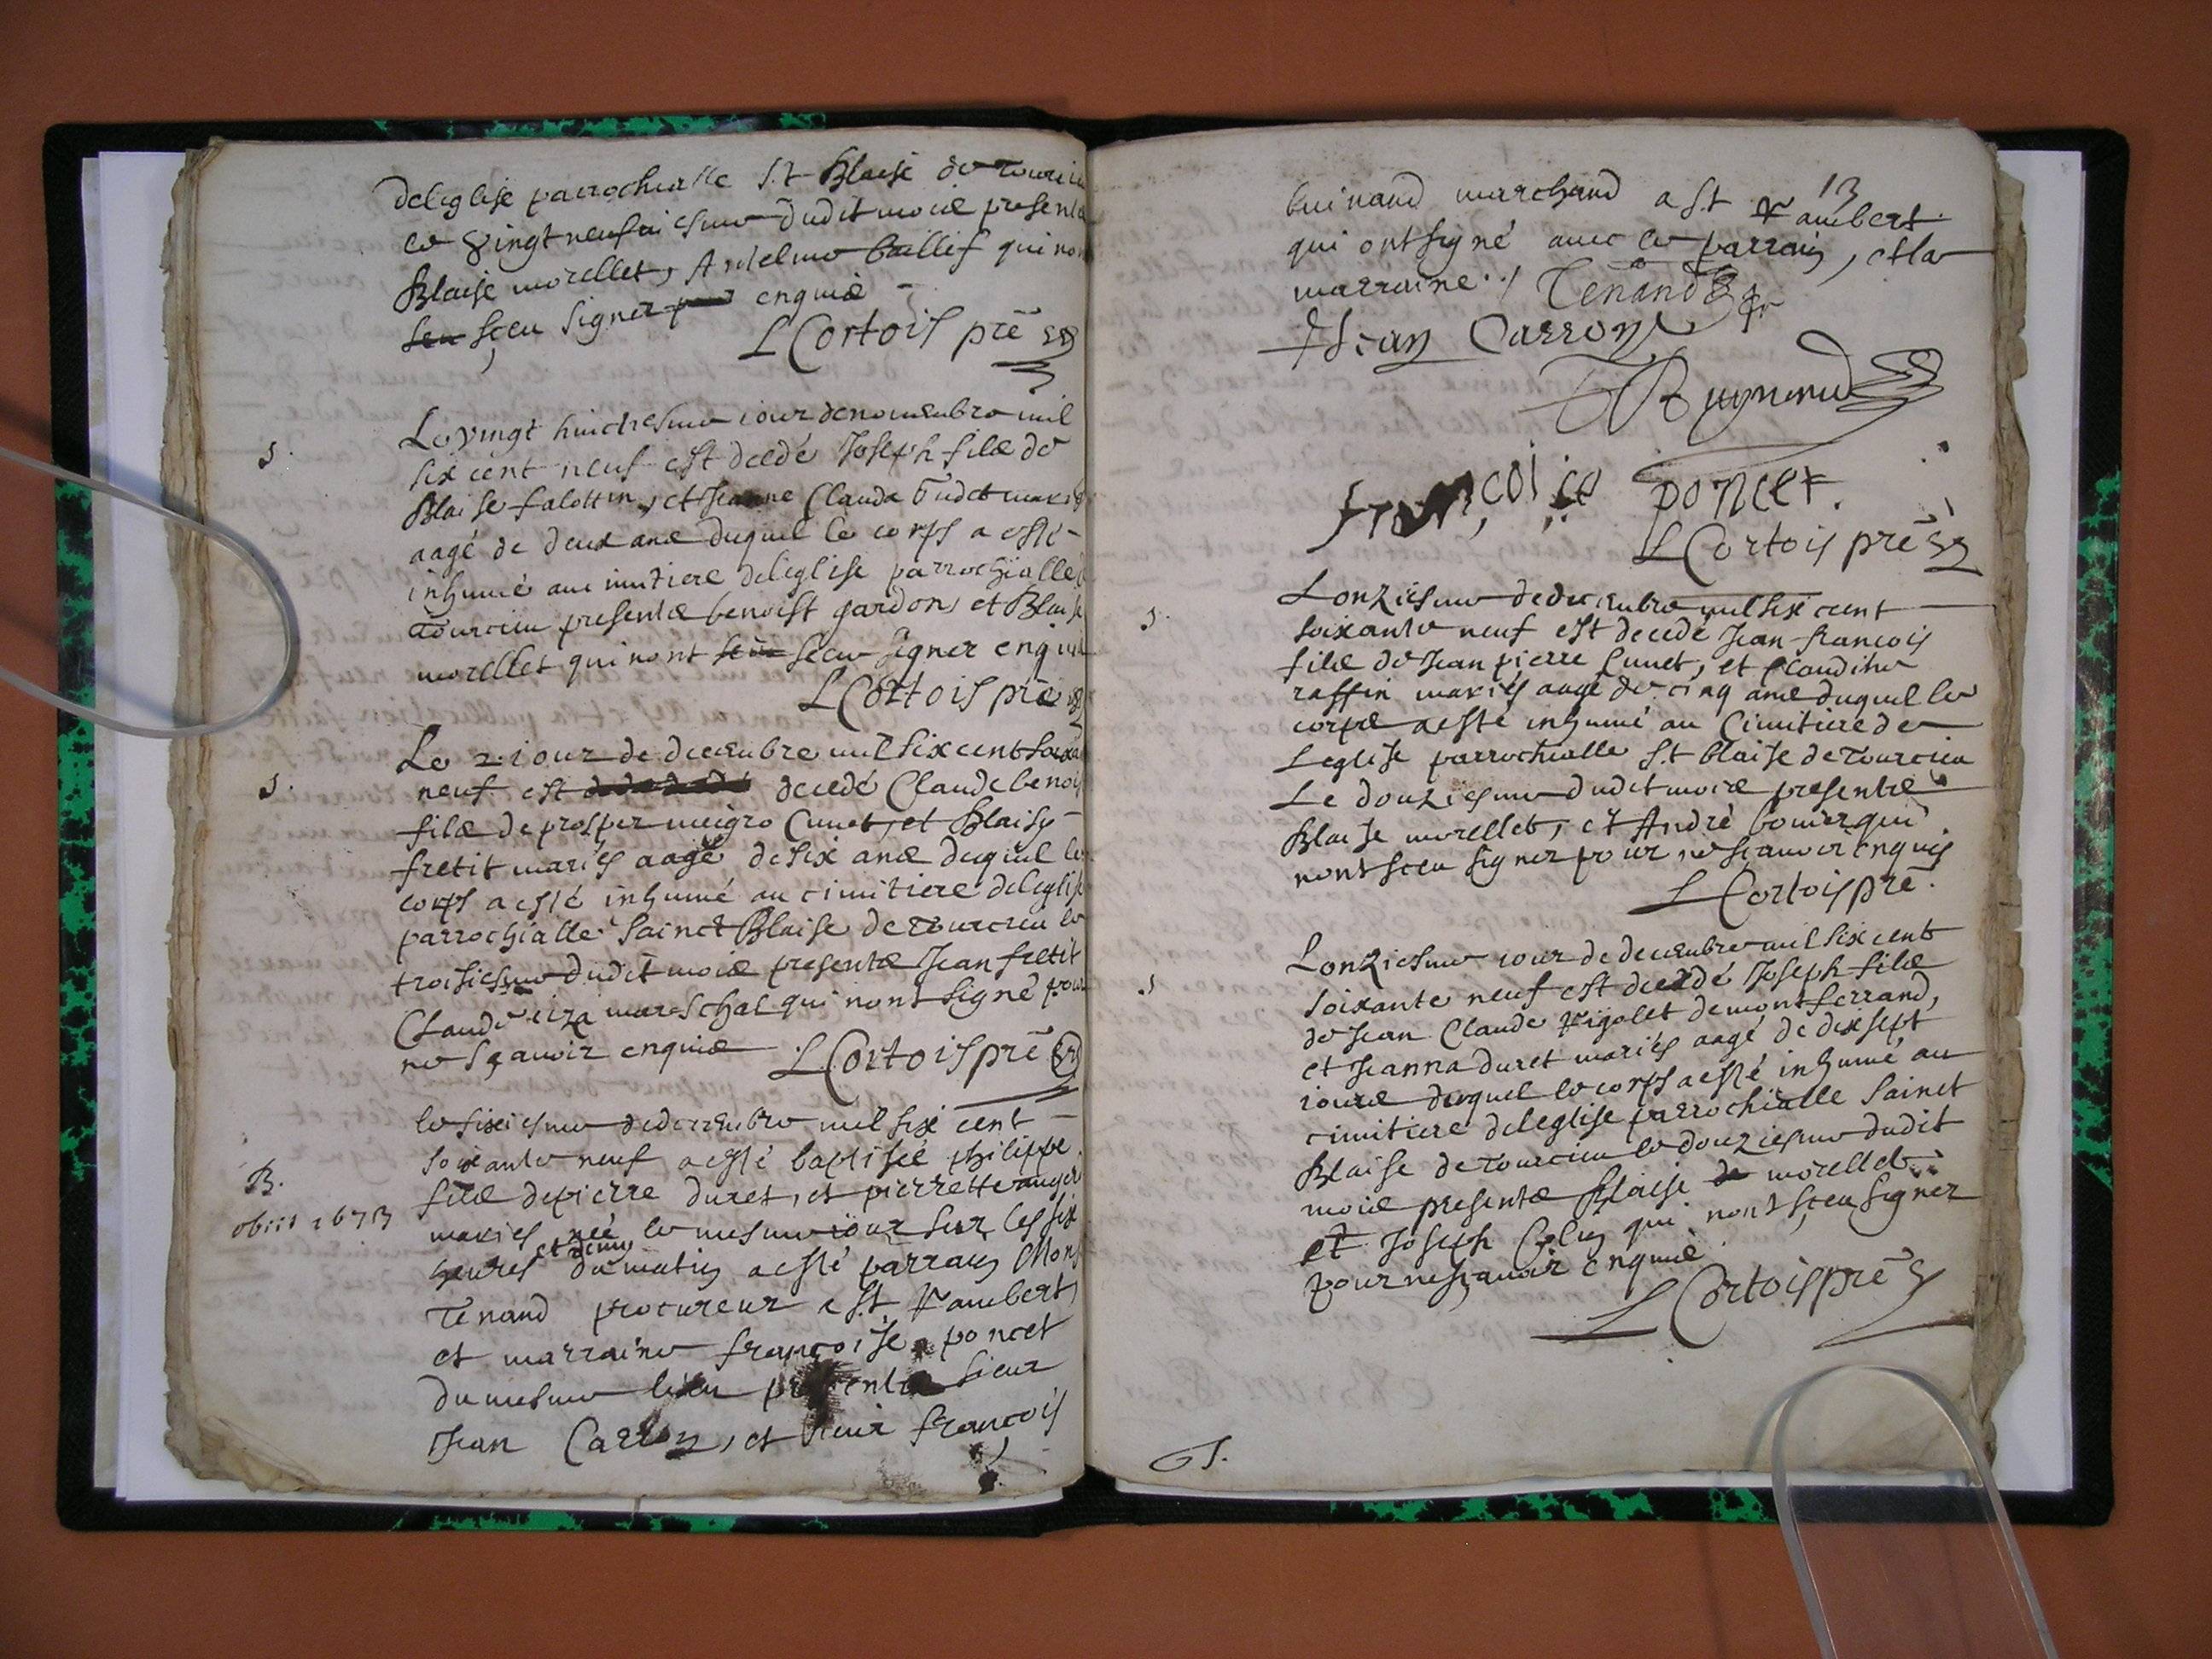 deleglise parrochialle S.t Blaise de Tourcieu
le vingt neufuiesme dudit mois presents
Blaise morellet, Antelme baillif qui nont
sceu signer enquis
LCortois pre
S.
Le vingt huictiesme iour de nouembre mil
six cent neuf est decedé Joseph fils de
Blaise falottin, et Jeanne Claude mariés
aagé de deux ans duquel le corps a esté
inhumé au cimitiere deleglise parrochialle de
Tourcieu presents benoist gardon et Blaise
morellet qui nont sceu signer enquis
LCortois pre
S.
Le 2. iour de decembre mil six cent soixante
neuf est decedé Claude benoist
fils de prosper meigro Cunet, et Blaise
fretit mariés aagé de six ans duquel le
corps a esté inhumé au cimitiere deleglise
parrochialle Sainct Blaise de Tourcieu le
troisiesme dudit mois presents Jean fretit
Claude mareschal qui nont signé pour
ne sçauoir enquis LCortois pre
B.
obiit 1673
le sixiesme de decembre mil six cent
soixante neuf a esté baptisée philippe
fille de pierre duret, et pierrette
mariés née le mesme iour sur les six
heures et demy du matin a esté parrain Mons
Tenand procureur a S.t Rambert
et marraine françoise poncet
du mesme lieu presents sieur
Jean Carron, et sieur françois
13
buinand marchand a S.t Rambert
qui ont signé auec le parrain, et la
marraine ./ Tenand
Jean Carron
françoise poncet.
LCortois pre
S.
Lonziesme de decembre mil six cent
soixante neuf est decedé Jean francois
fils de Jean pierre Cunet, et Claudine
raffin mariés aagé de cinq ans duquel le
corps a esté inhumé au Cimitiere de
Leglise parrochialle S.t blaise de Tourcieu
Le douziesme dudit mois presents
Blaise morellet, et André bouier qui
nont sceu signer pour ne scauoir enquis
LCortois pre.
S
Lonziesme iour de decembre mil six cent
soixante neuf est decedé Joseph fils
de Jean Claude Rigolet de montferrand,
et Jeanna duret mariés aagé de dixsept
iours duquel le corps a esté inhumé au
cimitiere deleglise parrochialle Sainct
Blaise de Tourcieu le douziesme dudit
mois presents Blaise morellet
et Joseph qui nont sceu signer
pour ne sçauoir enquis
LCortois pre